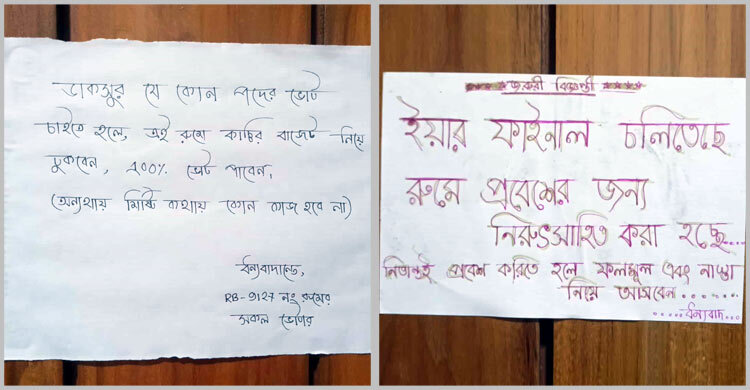 ডাকসুর যে কোন পদের ভোট
চাইতে হলে, এই রুমে কাচ্চির বাজেট নিয়ে
ঢুকবেন, ১০০% ভোট পাবেন,
(অন্যথায় মিষ্টি কথায় কোন কাজ হবে না)
ধন্যবাদান্তে,
RB-9127 নং রুমের
সকল ভোটার
জরুরী বিজ্ঞপ্তী
ইয়ার ফাইনাল চলিতেছে
রুমে প্রবেশের জন্য
নিরুৎসাহিত করা হচ্ছে...
নিতান্তই প্রবেশ করিতে হলে ফলমূল এবং নাস্তা
নিয়ে আসবেন..........
......ধন্যবাদ...